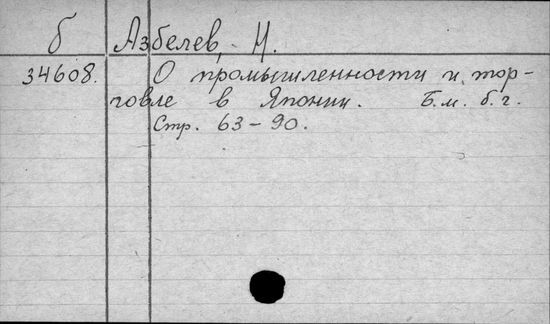 б Азбелев, И.
34608. О промышленности и тор-
говле в Японии. Б.м. б.г.
Стр. 63-90.